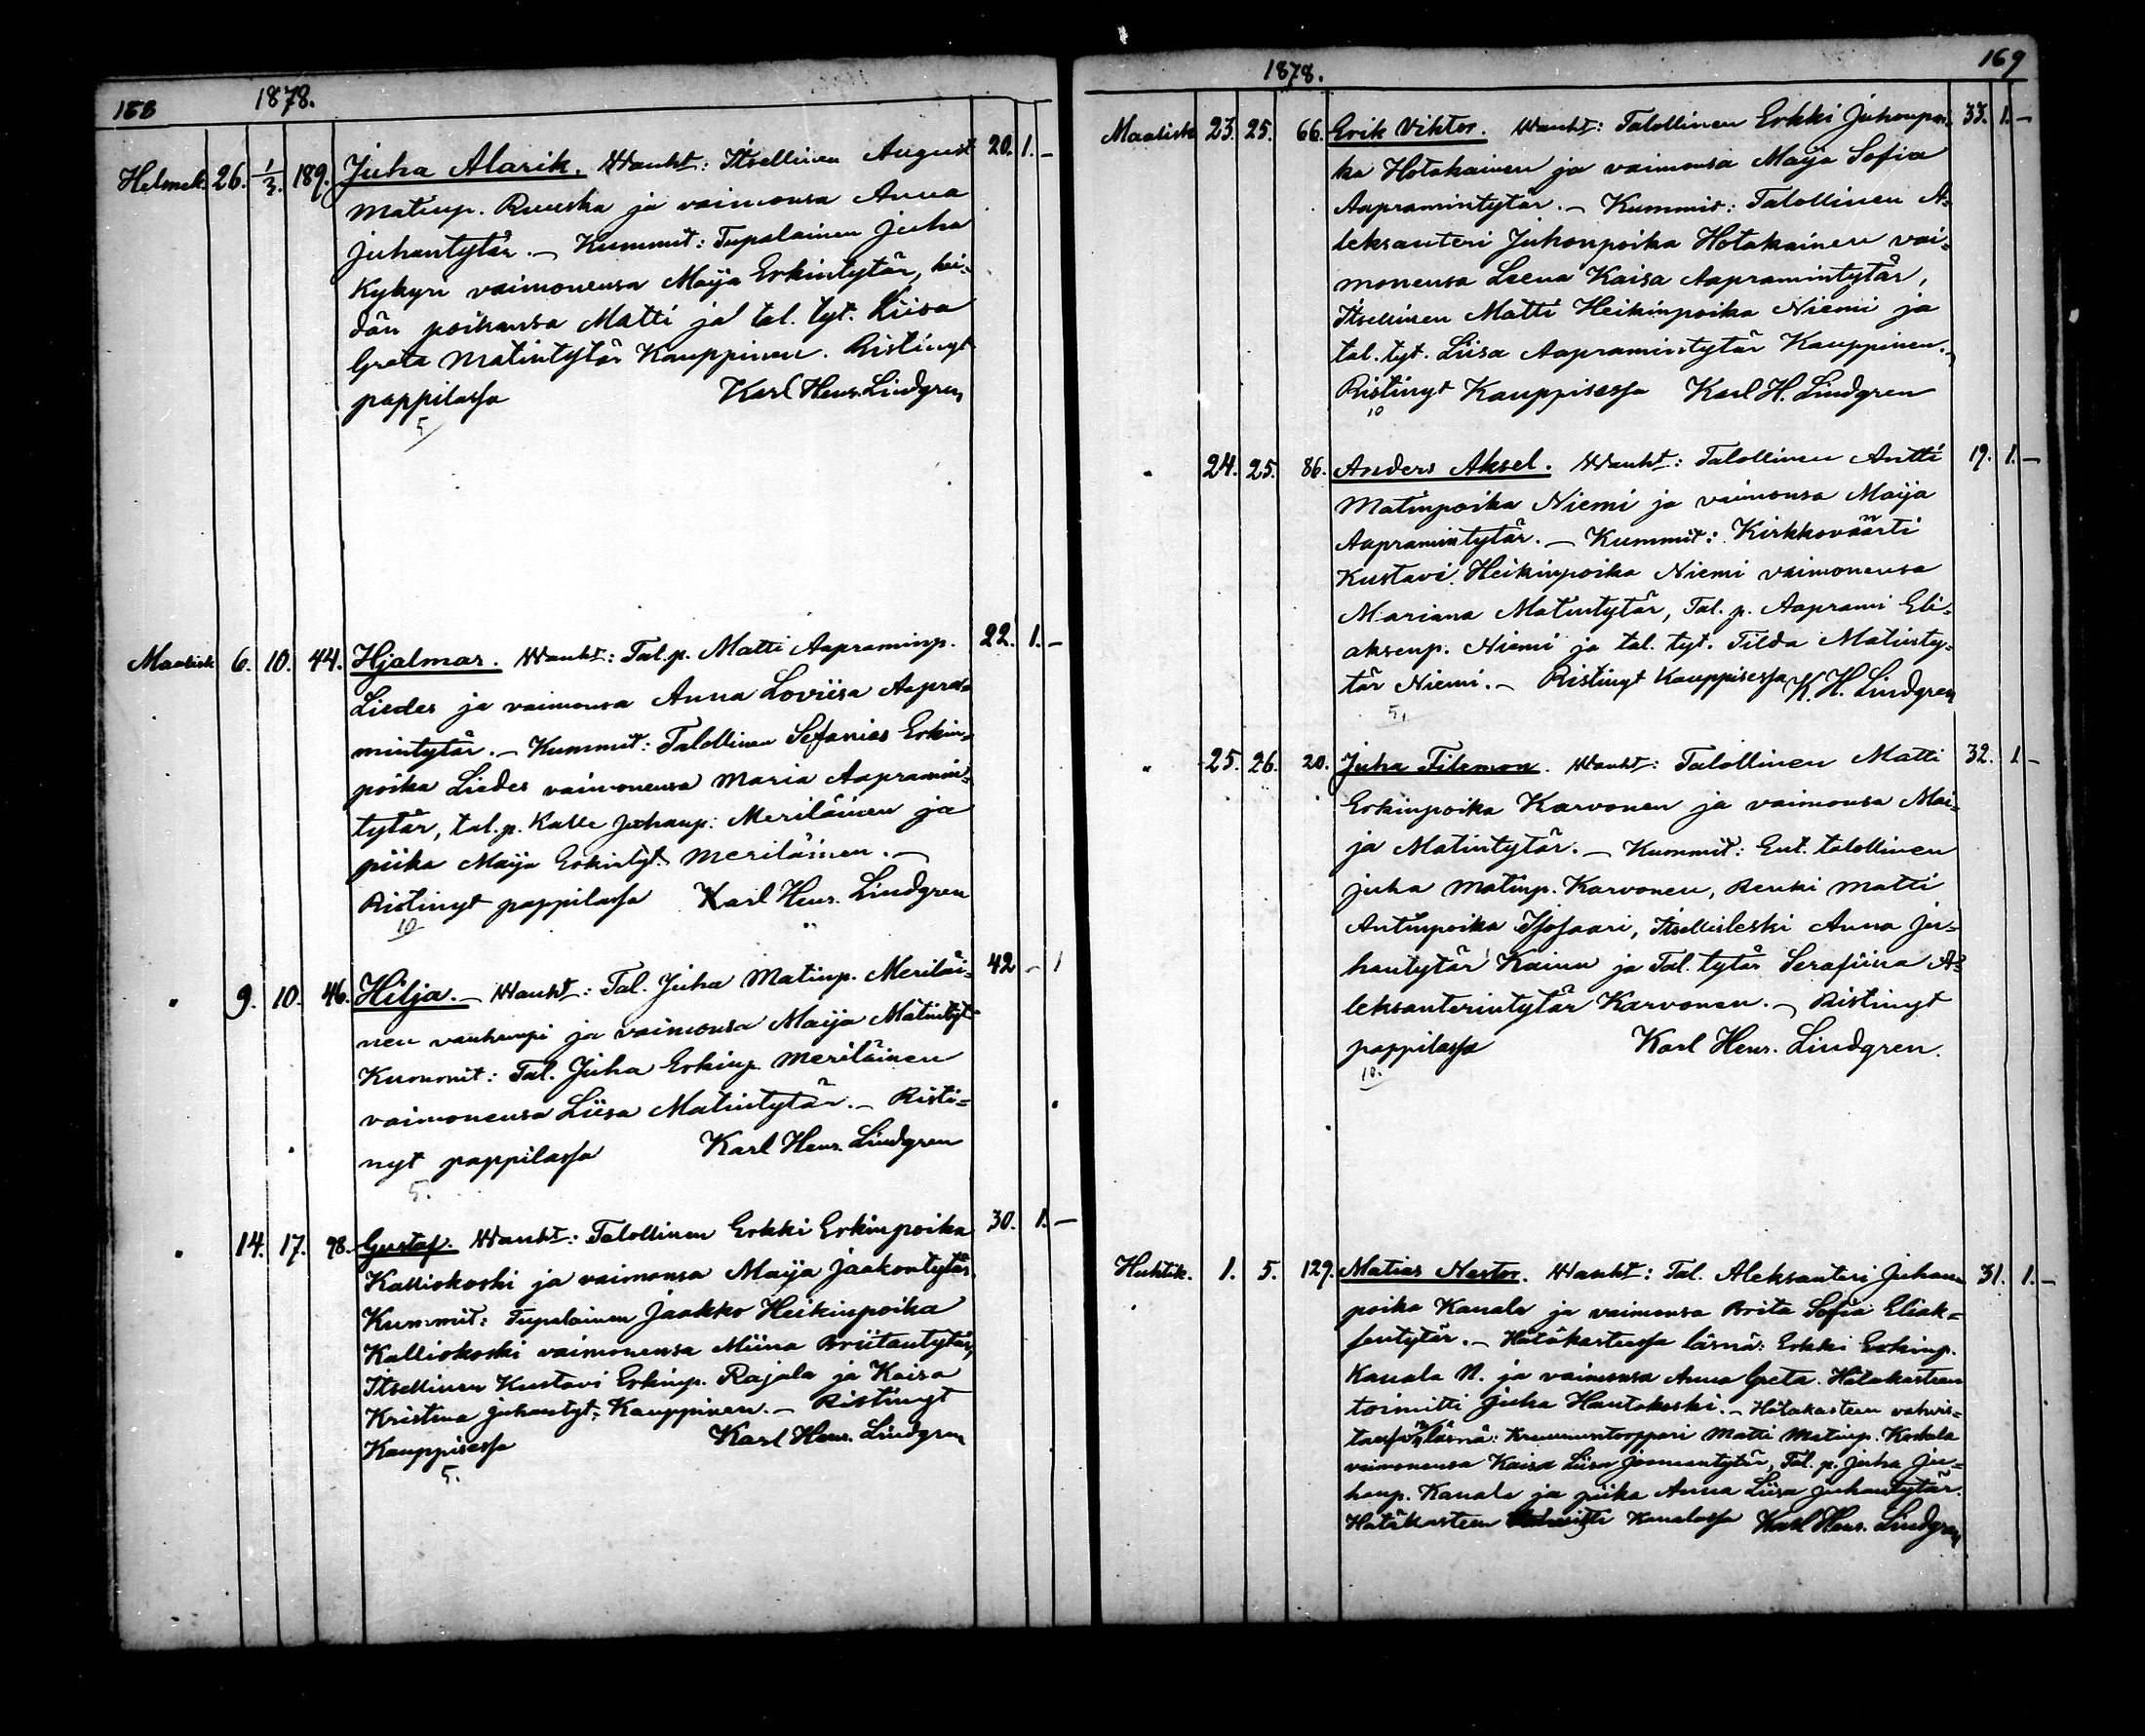 158 1878.
Helmik. 26. 1/3. 189. Juha Alarik. Wanht: Itsellinen August 20. 1. –
Matinp. Ruuska ja vaimonsa Anna
Juhantytär. – Kummit: Tupalainen Juha
Kykyri vaimonensa Maija Erkintytär, hei-
dän poikansa Matti ja tal. tyt. Liisa
Greta Matintytär Kauppinen. Ristinyt
pappilassa Karl Henr. Lindgren
5
Maalisk 6. 10. 44. Hjalmar. Wanht: Tal. p. Matti Aapraminp. 22. 1. –
Liedes ja vaimonsa Anna Loviisa Aapra-
mintytär. – Kummit: Talollinen Sefanias Erkin-
poika Liedes vaimonensa Maria Aapramin-
tytär, tal. p. Kalle Juhanp: Meriläinen ja
piika Maija Erkintyt. Meriläinen. –
Ristinyt pappilassa Karl Henr. Lindgren
10
" 9. 10. 46. Hilja. – Wanht: Tal. Juha Matinp. Meriläi- 42 – 1
nen vanhempi ja vaimonsa Maija Matintyt-
Kummit: Tal. Juha Erkinp. Meriläinen
vaimonensa Liisa Matintytär. – Risti=
nyt pappilassa Karl Henr. Lindgren
5.
" 14. 17. 98. Gustaf. Wanht: Talollinen Erkki Erkinpoika 30. 1. –
Kalliokoski ja vaimonsa Maija Jaakontytär.
Kummit: Tupalainen Jaakko Heikinpoika
Kalliokoski vaimonensa Miina Briitantytär,
Itsellinen Kustavi Erkinp. Rajala ja Kaisa
Kristina Juhantyt: Kauppinen. – Ristinyt
Kauppisessa Karl Henr. Lindgren
5.
1878. 169
Maalisk 23. 25. 66. Erik Viktor. Wanht: Talollinen Erkki Juhonpoi- 33. 1. –
ka Hotakainen ja vaimonsa Maija Sofia
Aapramintytär. – Kummit: Talollinen A-
leksanteri Juhonpoika Hotakainen vai-
monensa Leena Kaisa Aapramintytär,
Itsellinen Matti Heikinpoika Niemi ja
tal. tyt. Liisa Aapramintytär Kauppinen. –
Ristinyt Kauppisessa Karl H. Lindgren
10
" 24. 25. 86. Anders Aksel. Wanht: Talollinen Antti 19. 1. –
Matinpoika Niemi ja vaimonsa Maija
Aapramintytär. – Kummit: Kirkkoväärti
Kustavi Heikinpoika Niemi vaimonensa
Mariana Matintytär, Tal. p. Aaprami Eli-
aksenp. Niemi ja tal. tyt. Tilda Matinty-
tär Niemi. – Ristinyt Kauppisessa K. H. Lindgren
5.
" 25. 26. 20. Juha Filemon. Wanht: Talollinen Matti 32. 1 –
Erkinpoika Karvonen ja vaimonsa Mai-
ja Matintytär. – Kummit: Ent. talollinen
Juha Matinp. Karvonen, Renki Matti
Antinpoika Isosaari, Itsellisleski Anna Ju-
hantytär Kainu ja Tal. tytär Serafiina A-
leksanterintytär Karvonen. – Ristinyt
pappilassa Karl Henr. Lindgren.
10.
Huhtik. 1. 5. 129. Matias Nestor. Wanht: Tal. Aleksanteri Juhan 31. 1. –
poika Kanala ja vaimonsa Brita Sofia Eliak-
sentytär. – Hätäkasteessa läsnä: Erkki Erkinp.
Kanala N. ja vaimonsa Anna Greta. Hätäkasteen
toimitti Juha Hautakoski. – Hätäkasteen vahvis-
taessa läsnä: Kruununtorppari Matti Matinp. Kanala
vaimonensa Kaisa Liisa Joonantytär, Tal. p. Juha Ju-
hanp. Kanala ja piika Anna Liisa Juhantytär.
Hätäkasteen vahvisti Kanalassa Karl Henr. Lindgren